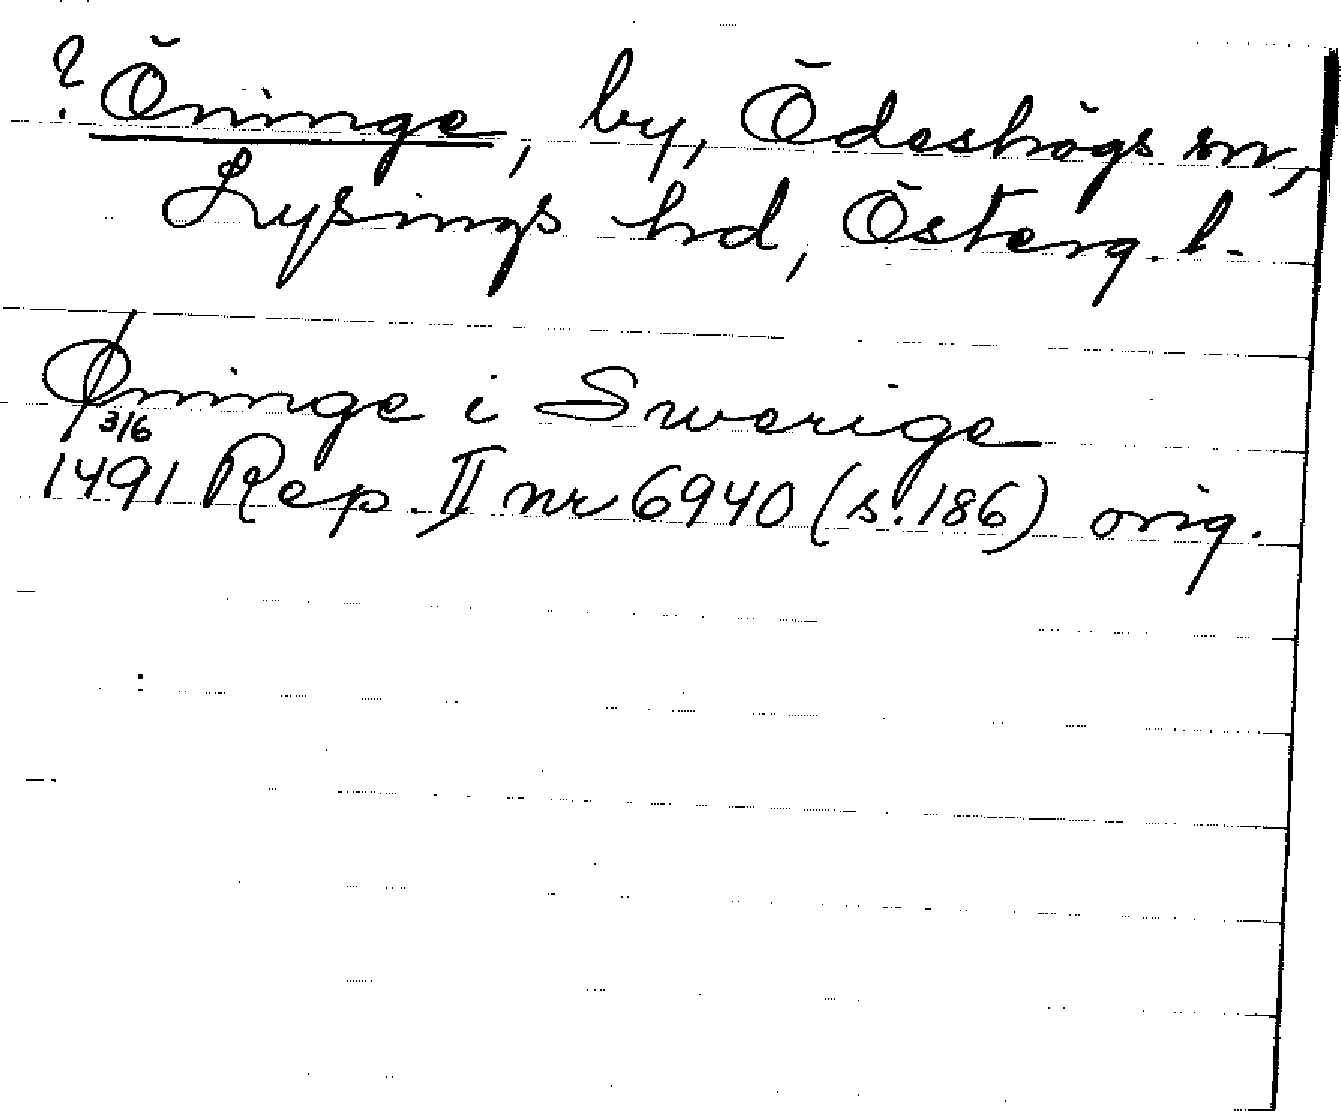 ? Öninge, by, Ödeshögs sn,
Lysings hd, Österg. l.
Øninge i Swerige
3/6
1491 Rep. II nr 6940 (s. 186) orig.